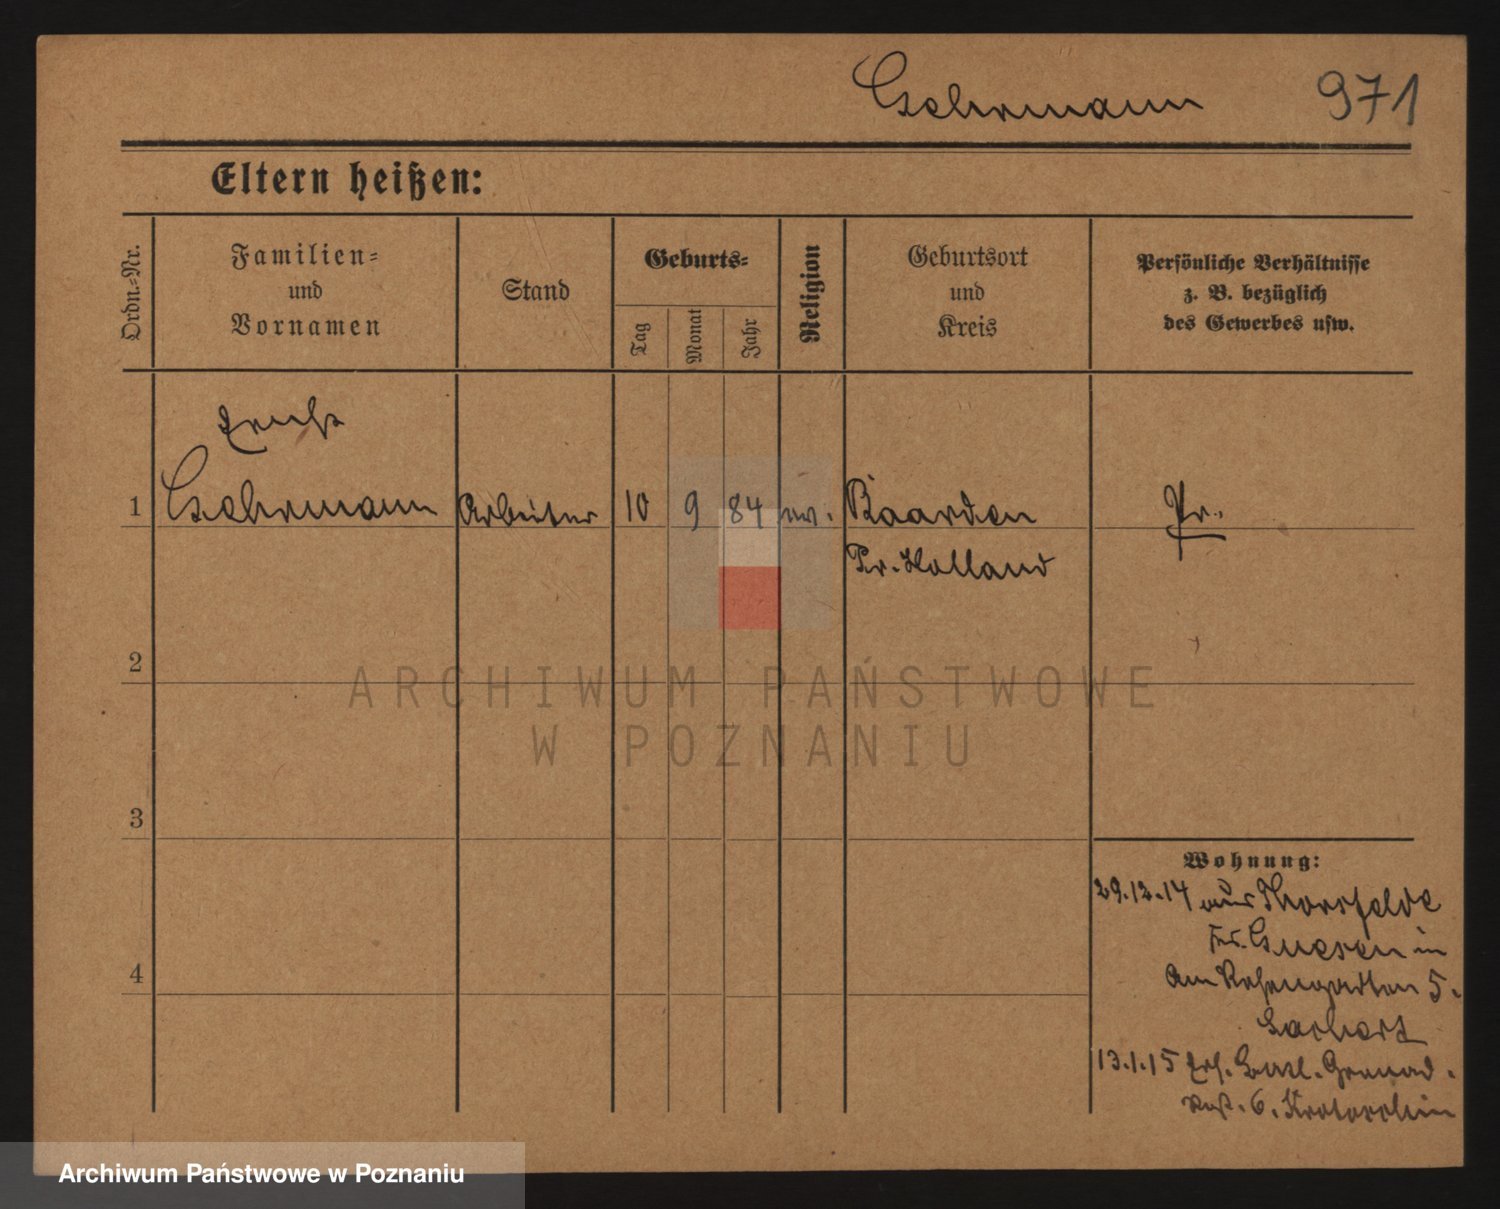 Gehrmann 971
Eltern heißen:
Ordn.-Nr.
Familien-
und
Vornamen
Stand
Geburts-
Tag
Monat
Jahr
Religion
Geburtsort
und
Kreis
Persönliche Verhältnisse
z. B. bezüglich
des Gewerbes usw.
Ernst
1 Gehrmann Arbeiter 10 9 84 ev. Baarden Pr.
Pr. Holland
2
ARCHIWUM PAŃSTWOWE
W POZNANIU
3
Wohnung:
29.12.14 aus
Kr. Gnesen in
4
Am Rosengarten 5.
13.1.15 Ers. Batl. Grenad.
Regt. 6. Krotoschin
Archiwum Państwowe w Poznaniu